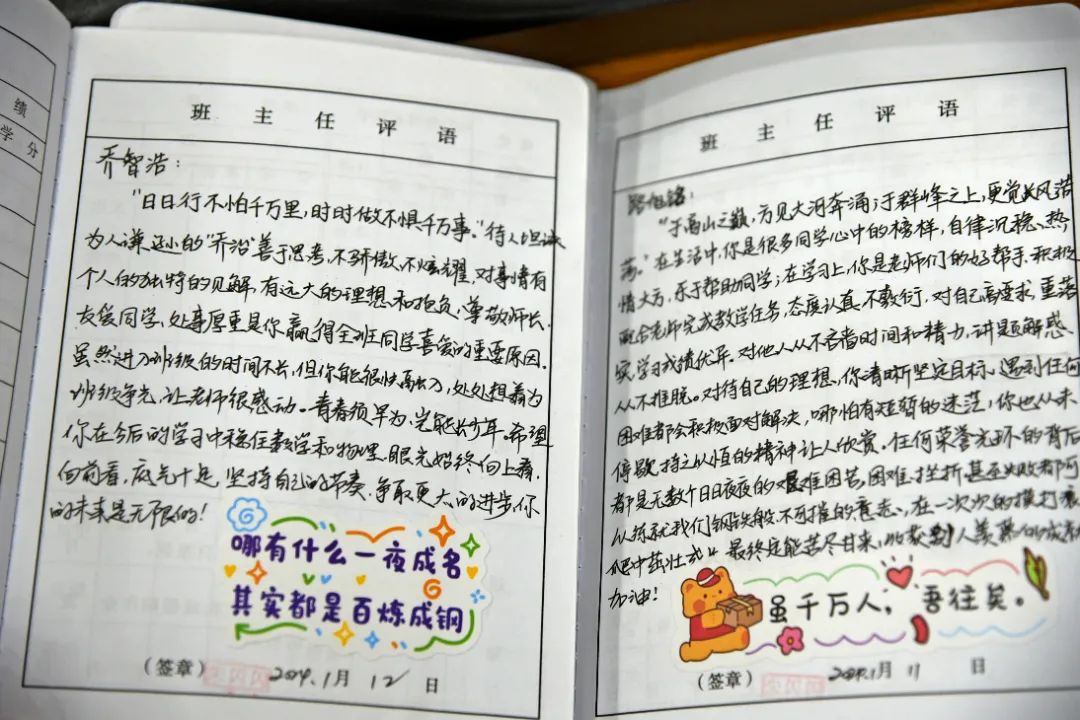 绩
学 分
班 主 任 评 语
乔智浩：
“日日行不怕千万里，时时做不惧千万事。”待人坦诚
为人谦逊的“乔治”善于思考，不骄傲，不炫耀，对事情有
个人的独特的见解，有远大的理想和抱负，尊敬师长，
友爱同学，处事厚重是你赢得全班同学喜爱的重要原因。
虽然进入班级的时间不长，但你能很快融入，处处想着为
班级争光，让老师很感动。青春须早为，岂能长少年。希望
你在今后的学习中稳住数学和物理，眼光始终向上看，
向前看，底气十足，坚持自己的节奏，争取更大的进步，你
的未来是无限的！
哪有什么一夜成名
其实都是百炼成钢
（签章） 1月 12 日
班 主 任 评 语
“于高山之巅，方见大河奔涌；于群峰之上，更觉长风浩
荡。”在生活中，你是很多同学心中的榜样，自律沉稳，热
情大方，乐于帮助同学；在学习上，你是老师们的好帮手，积极
配合老师完成教学任务，态度认真，不敷衍，对自己高要求，重落
实，学习成绩优异。对他人从不吝啬时间和精力，讲题解惑
从不推脱。对待自己的理想，你清晰坚定目标，遇到任何
困难都会积极面对解决，哪怕有短暂的迷茫，你也从未
停歇，持之以恒的精神让人欣赏。任何荣誉光环的背后
都是无数个日日夜夜的艰难困苦，困难、挫折甚至失败都可
以练就我们钢铁般不可摧的意志，在一次次的摸打滚
爬中茁壮成长，最终定能苦尽甘来，收获别人羡慕的成
加油！
虽千万人，吾往矣。
（签章） 1月 11 日